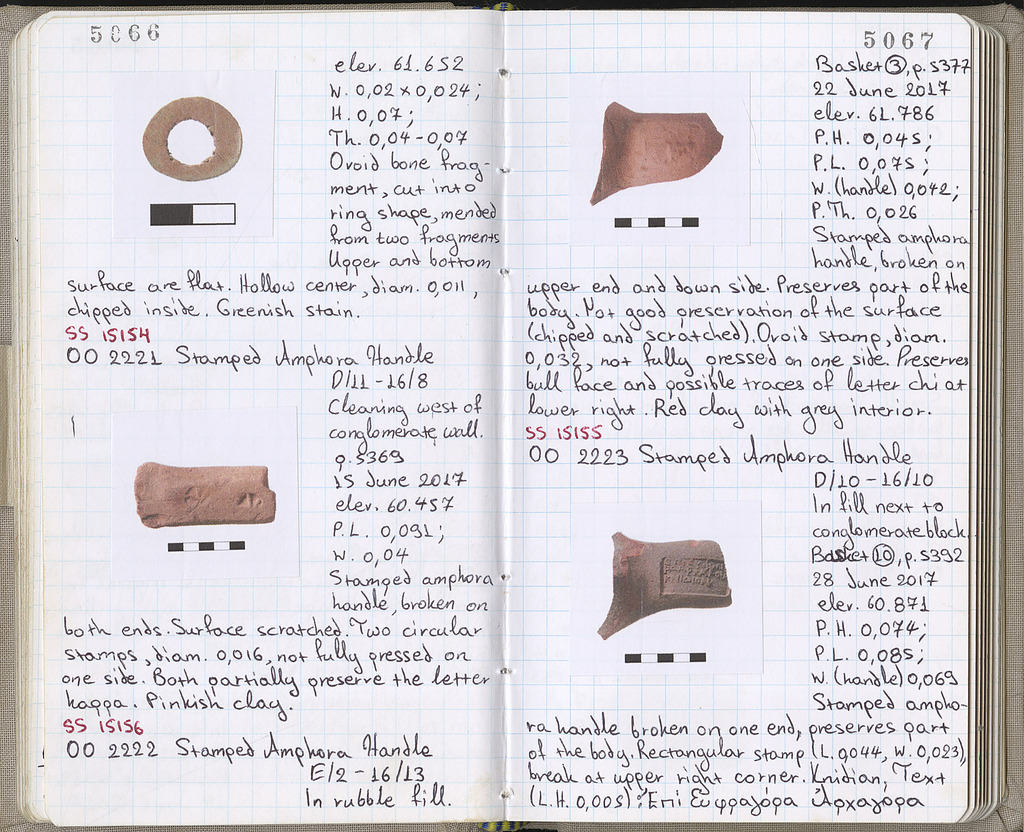 5066
elev. 61.652
W. 0,02 x 0,024;
H. 0,07;
Th. 0,04-0,07
Ovoid bone frag-
ment, cut into
ring shape, mended
from two fragments
Upper and bottom
surface are flat. Hollow center, diam. 0,011,
chipped inside. Greenish stain.
SS 15154
OO 2221 Stamped Amphora Handle
D/11-16/8
Cleaning west of
conglomerate wall.
p. 5369
15 June 2017
elev. 60.457
P.L. 0,091;
W. 0,04
Stamped amphora
handle, broken on
both ends. Surface scratched. Two circular
stamps, diam. 0,016, not fully pressed on
one side. Both partially preserve the letter
kappa. Pinkish clay.
SS 15156
OO 2222 Stamped Amphora Handle
E/2-16/13
In rubble fill.
5067
Basket 3, p. 5377
22 June 2017
elev. 61.786
P.H. 0,045;
P.L. 0,075;
W. (handle) 0,042;
P.Th. 0,026
Stamped amphora
handle, broken on
upper end and down side. Preserves part of the
body. Not good preservation of the surface
(chipped and scratched). Ovoid stamp, diam.
0,032, not fully pressed on one side. Preserves
bull face and possible traces of letter chi at
lower right. Red clay with grey interior.
SS 15155
OO 2223 Stamped Amphora Handle
D/10-16/10
In fill next to
conglomerate block.
Basket 10, p. 5392
28 June 2017
elev. 60.871
P.H. 0,074;
P.L. 0,085;
W. (handle) 0,069
Stamped ampho-
ra handle broken on one end, preserves part
of the body. Rectangular stamp (L. 0,044, W. 0,023),
break at upper right corner. Knidian, Text
(L.H. 0,005): Ἐπί Εὐφραγόρα Ἀρχαγόρα